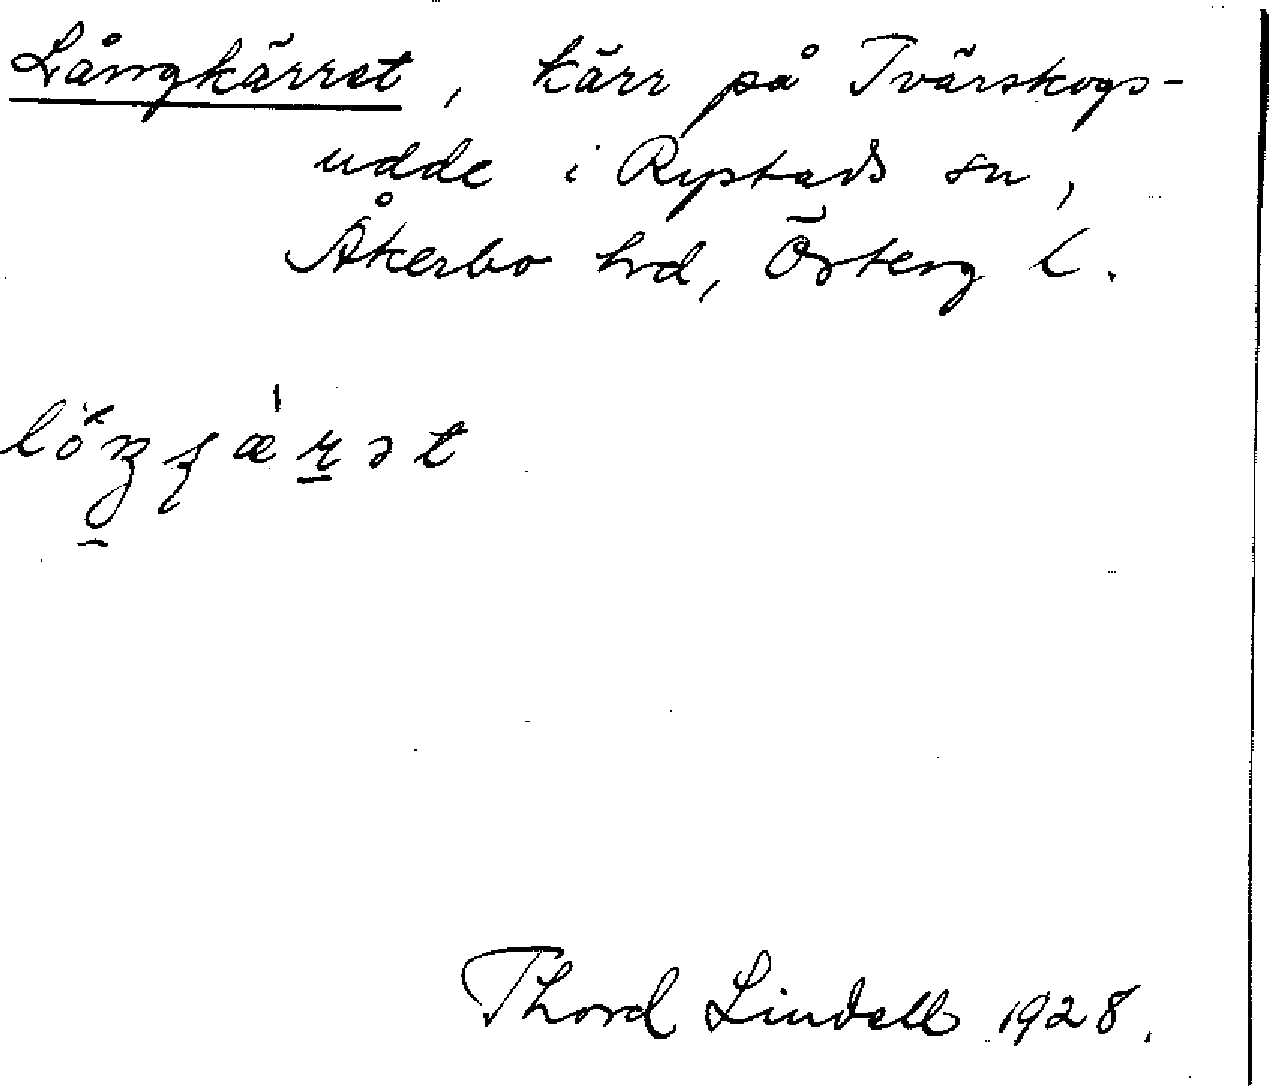 Långkärret, kärr på Tvärskogs-
udde i Rystads sn,
Åkerbo hd, Österg l.
Thord Lindell 1928.